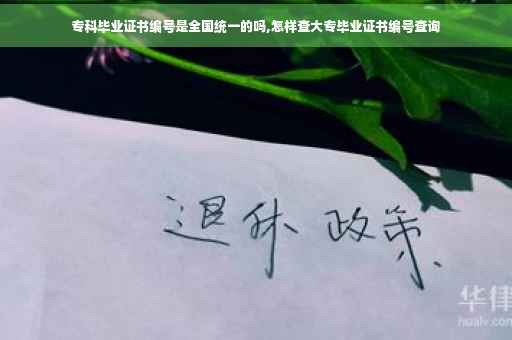 专科毕业证书编号是全国统一的吗,怎样查大专毕业证书编号查询
退休 政策
华律
hualv.com